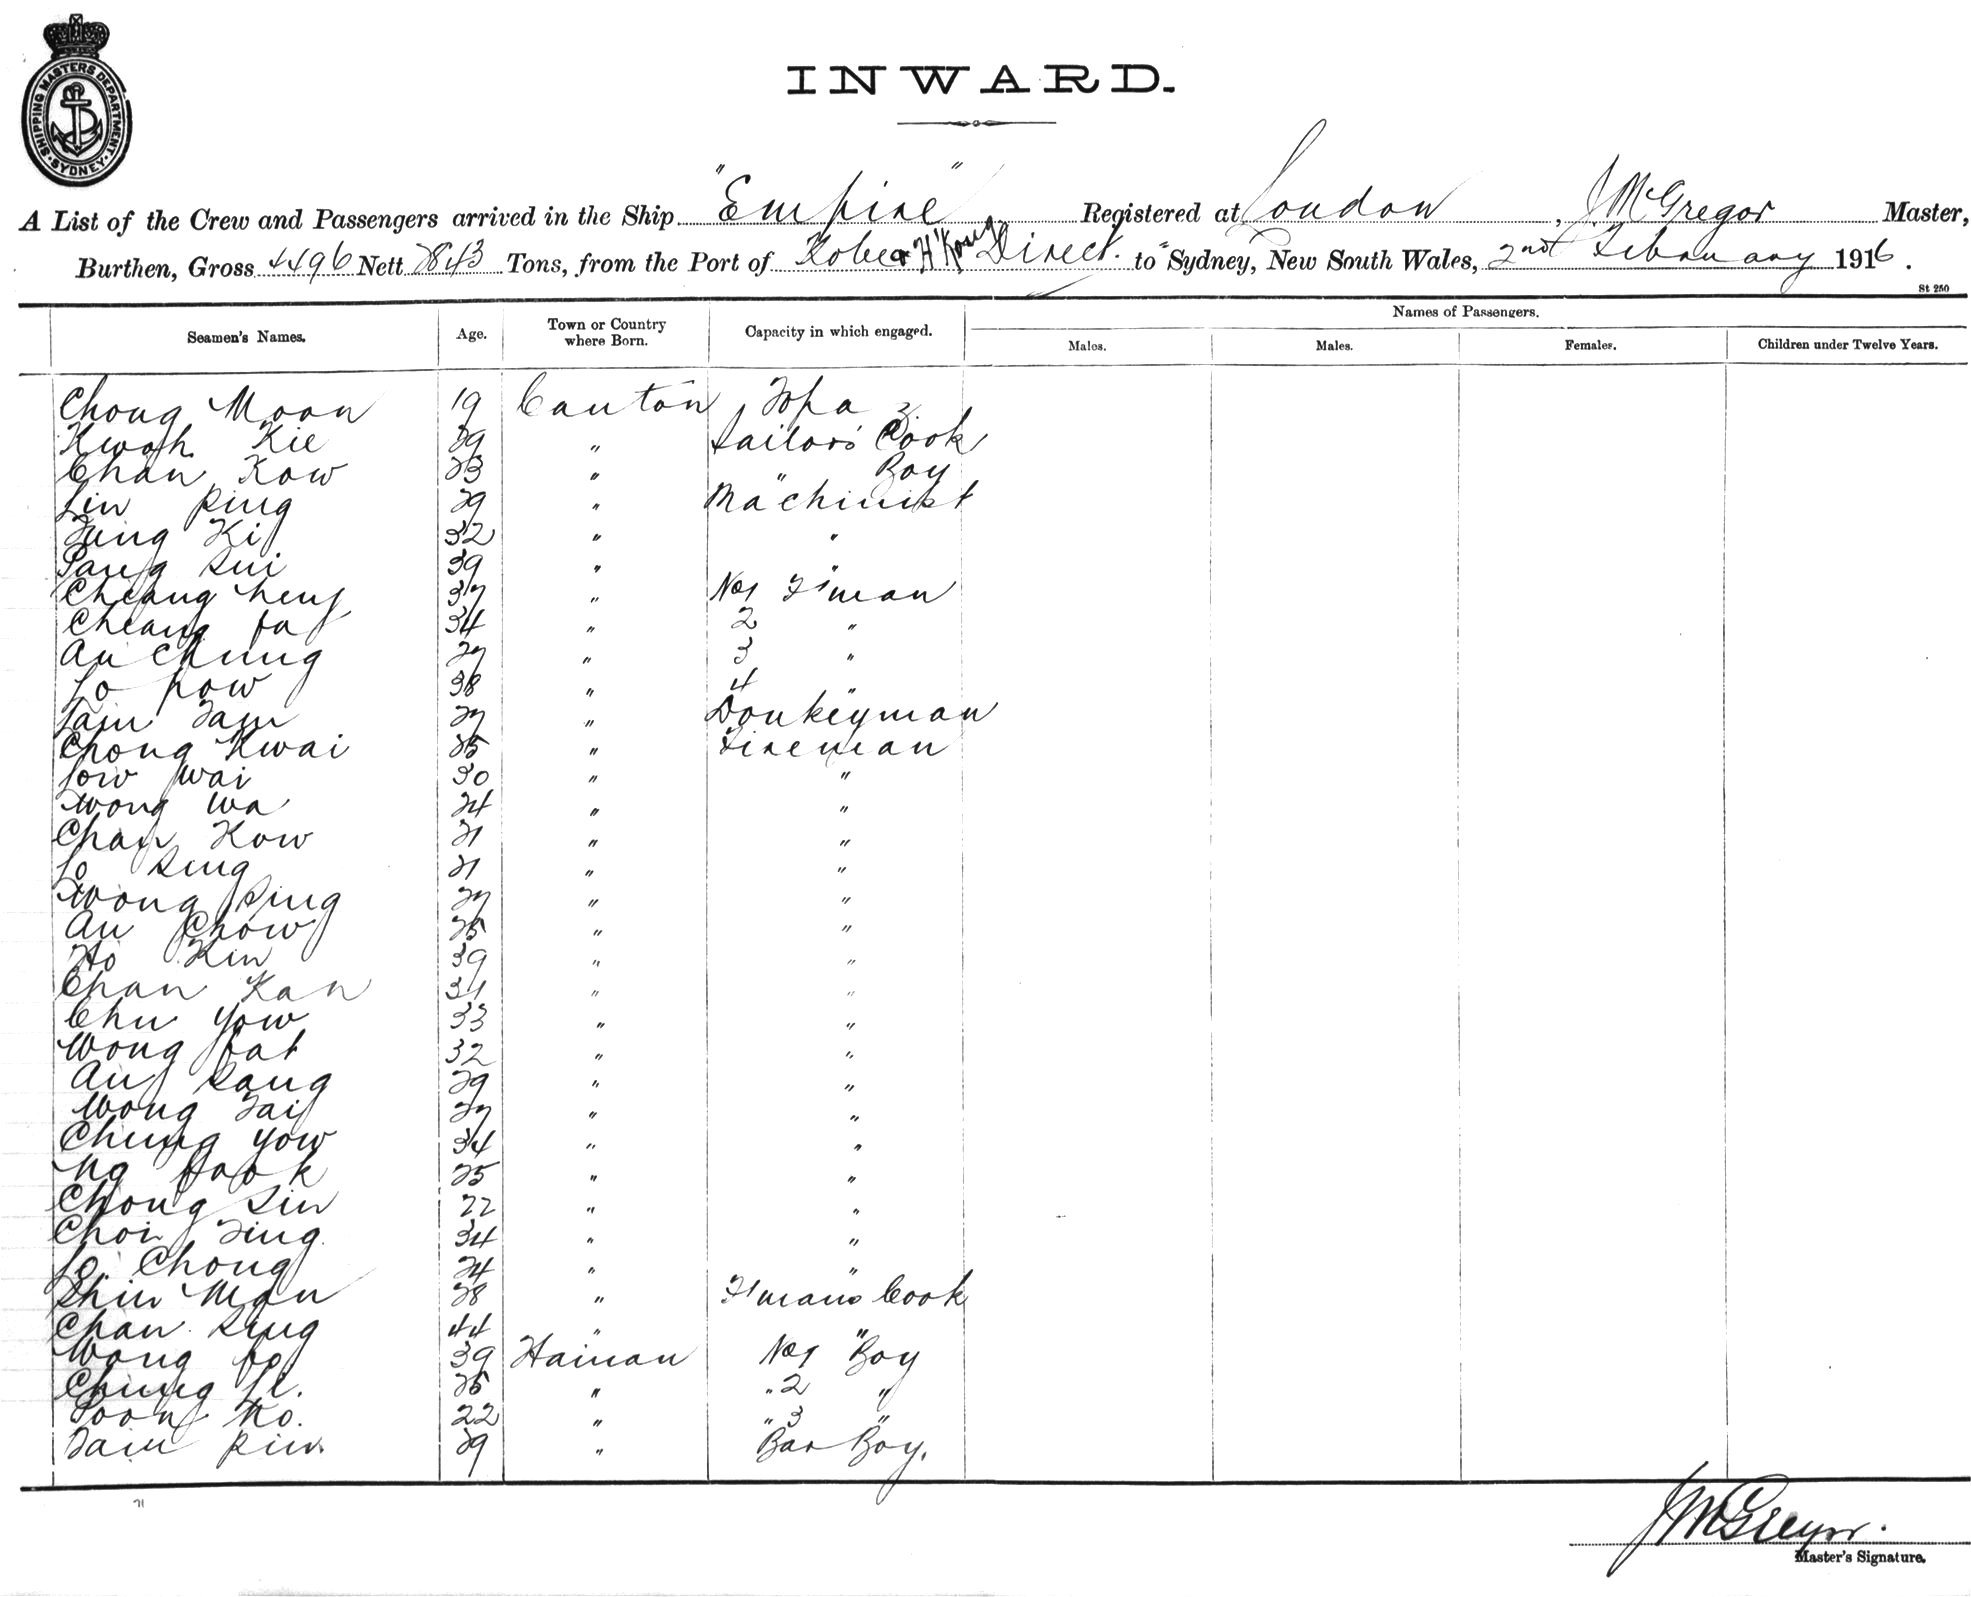 SHIPPING MASTERS DEPARTMENT · SYDNEY ·
INWARD.
A List of the Crew and Passengers arrived in the Ship "Empire" Registered at London, J McGregor Master,
Burthen, Gross 4496 Nett 2843 Tons, from the Port of Kobe & H'Kong Direct. to Sydney, New South Wales, 2nd February 1916.
St 250
Seamen's Names. Age. Town or Country where Born. Capacity in which engaged. Names of Passengers.
Males. Males. Females. Children under Twelve Years.
Chong Moon 19 Canton Topa
Kwoh Kie 29 " Sailors' Cook
Chan Kow 23 " " Boy
Lin Ping 29 " Machinist
Tung Ki 32 " "
Pang Sui 39 " "
Cheang 37 " No1 F'man
Cheang fat 34 " 2 "
Au Chung 27 " 3 "
Lo Pow 38 " 4 "
Lam Tam 27 " Donkeyman
Chong Kwai 25 " Fireman
Low Wai 30 " "
Wong Wa 24 " "
Chan Kow 21 " "
Lo Sing 21 " "
Wong Sing 27 " "
Au Chow 25 " "
Ho Kin 39 " "
Chan Kan 31 " "
Chu Yow 33 " "
Wong fat 32 " "
Au Sang 29 " "
Wong Tai 27 " "
Chung Yow 34 " "
Ng fook 25 " "
Chong Sin 22 " "
Choi Ting 34 " "
Lo Chong 24 " "
Shin Man 28 " F'mans Cook
Chan Sing 44 " "
Wong fo 39 Hainan No1 Boy
Chung Li. 25 " " 2 "
Soon Ko. 22 " " 3 "
Tam Pin 29 " Bar Boy.
J McGregor.
Master's Signature.